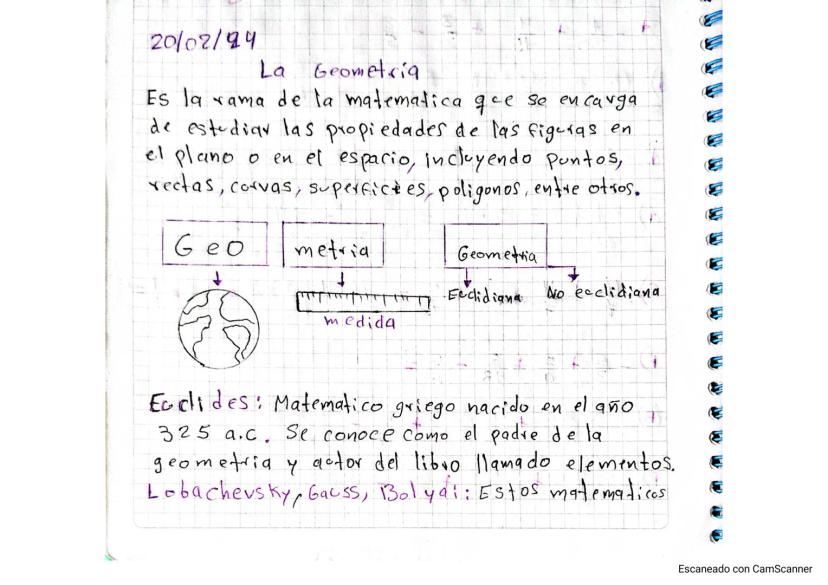 20/02/24
La Geometría
Es la rama de la matematica que se encarga
de estudiar las propiedades de las figuras en
el plano o en el espacio, incluyendo puntos,
rectas, curvas, superficies, poligonos, entre otros.
Geo metria Geometria
medida Euclidiana No euclidiana
Euclides: Matematico griego nacido en el año
325 a.c. Se conoce como el padre de la
geometria y autor del libro llamado elementos.
Lobachevsky, Gauss, Bolyai: Estos matematicos
Escaneado con CamScanner